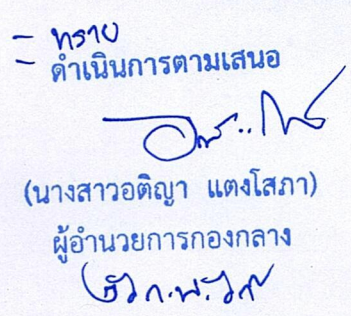 - ทราบ
- ดำเนินการตามเสนอ
(นางสาวอติญา แตงโสภา)
ผู้อำนวยการกองกลาง